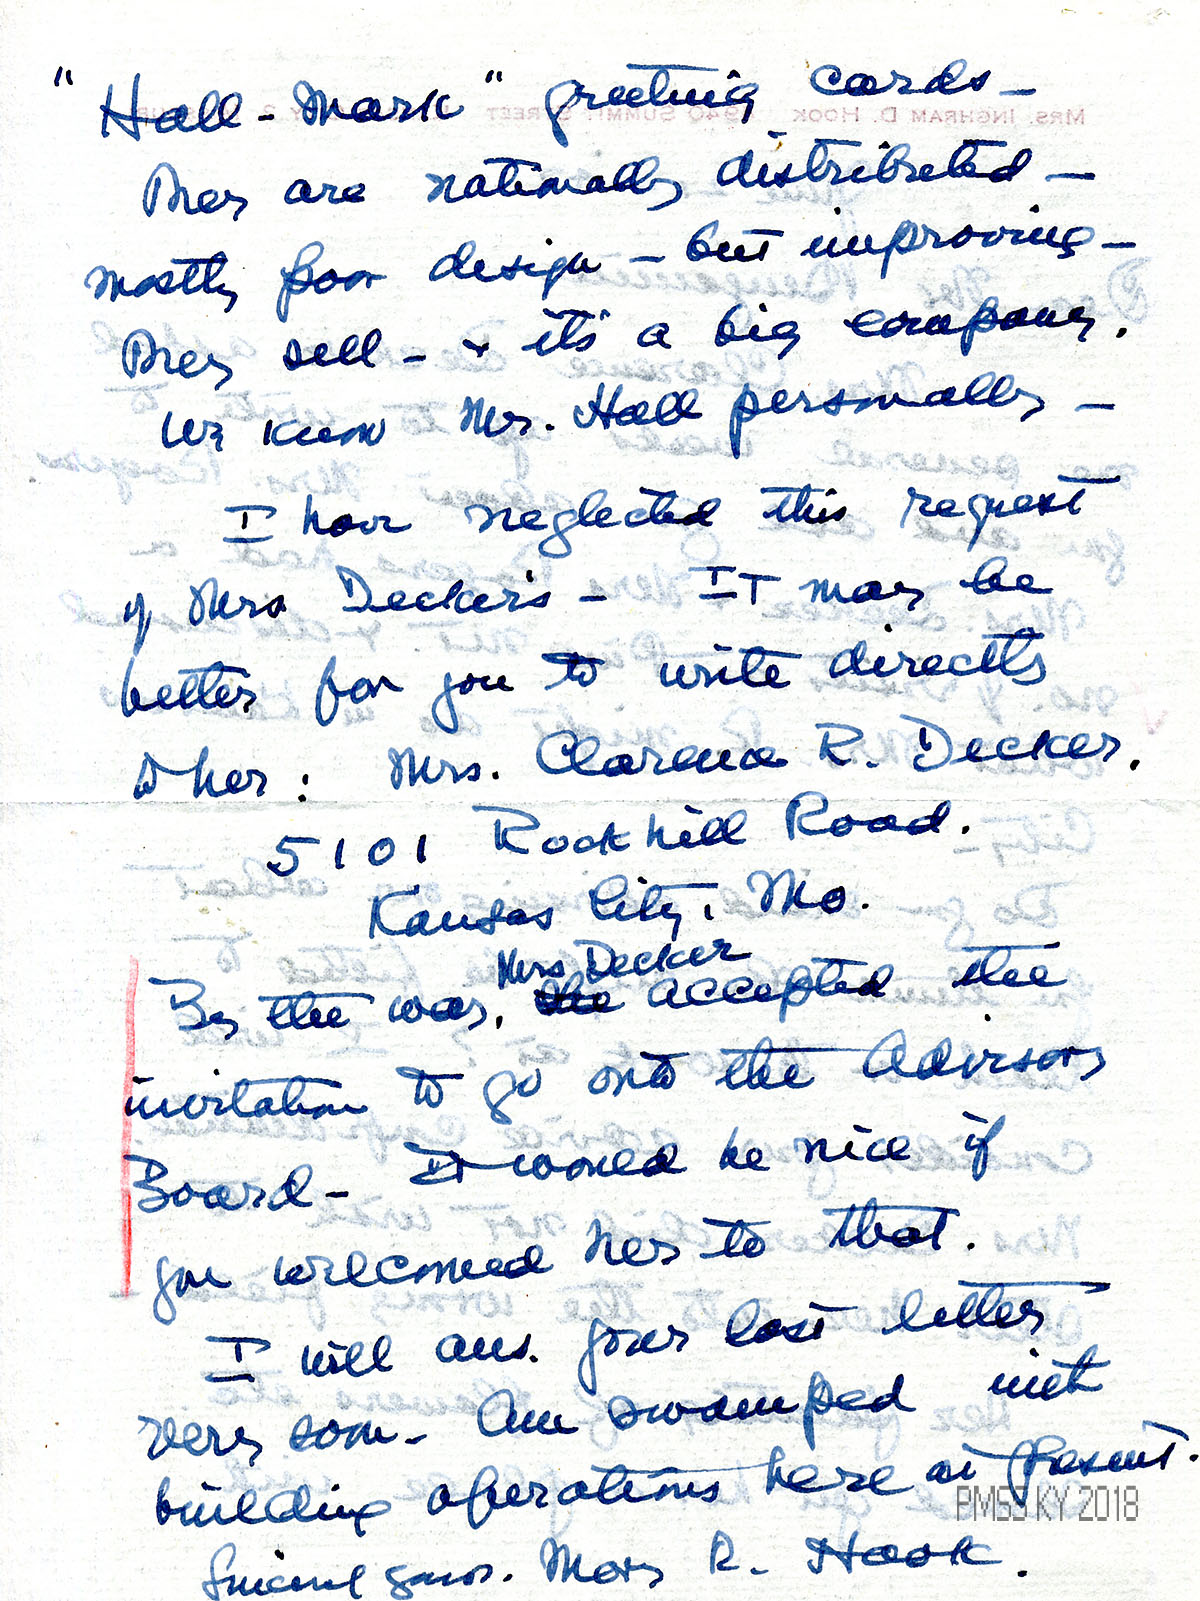 "Hall-Mark" greeting cards —
MRS. INGHRAM D. HOOK 4940 SUMMIT STREET
They are nationally distributed —
mostly poor design — but improving —
They sell — & it's a big company.
We know Mr. Hall personally —
I have neglected this request
of Mrs Decker's — IT may be
better for you to write directly
to her: Mrs. Clarence R. Decker.
5101 Rockhill Road.
Kansas City, Mo.
Mrs Decker
By the way, she accepted the
invitation to go onto the Advisory
Board — It would be nice if
you welcomed her to that.
I will ans. your last letter
very soon. Am swamped with
building operations here at present.
PMSS KY 2018
Sincerely yours. Mary R. Hook.